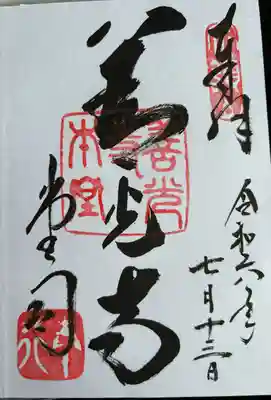 奉拝
令和六年
七月十三日
善光寺
善光寺本堂
堂司